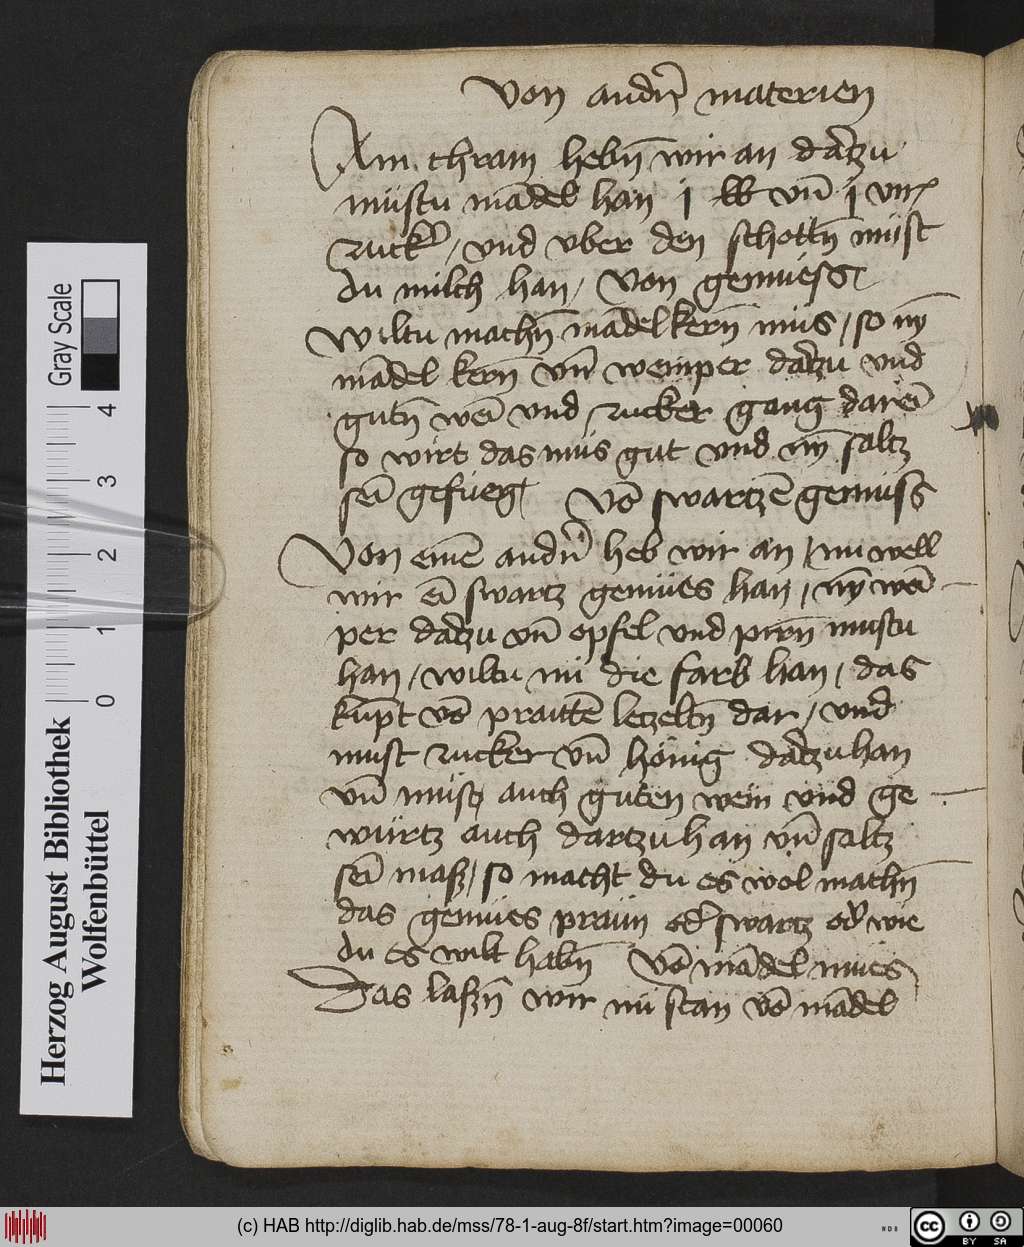 Von andrn̄ materien
Am chram hebn̄ wir an dartzu
müstu mādel han j lb vnd̄ j vir
zuckr̄ / vnd vber den schottn̄ müst
du milch han / Von gemuess
Wiltu machn̄ mādelkern̄ mus / so nȳ
mādel kern̄ vn̄ weinper dartzu vnd
gutn̄ wei̅ vnd zucker gang darei̅
so wirt das mus gut vnd nȳ saltz
sei̅ gefueg Vō swartzē gemuss
Von einē andn̄ heb wir an / nu well
wir ei̅ swartz gemües han / nȳ wei̅
per dartzu vn̄ opfel vnd pirn̄ mustu
han / wiltu nu die farb han / das
kūpt vō praittē letzeltn̄ dar / vnd
must zucker vn̄ hönig dartzu han
vn̄ müst auch guten wein vnd ge
würtz auch dartzu han vn̄ saltz
sei̅ mass / so macht du es wol machn̄
das gemües praun od̄ swartz od̄ wie
du es wilt habn̄ Vō mādel mues
Das lassn̄ wir nu stan vō mādel
Gray Scale
0 1 2 3 4
Herzog August Bibliothek
Wolfenbüttel
(c) HAB http://diglib.hab.de/mss/78-1-aug-8f/start.htm?image=00060
WDB
cc BY SA